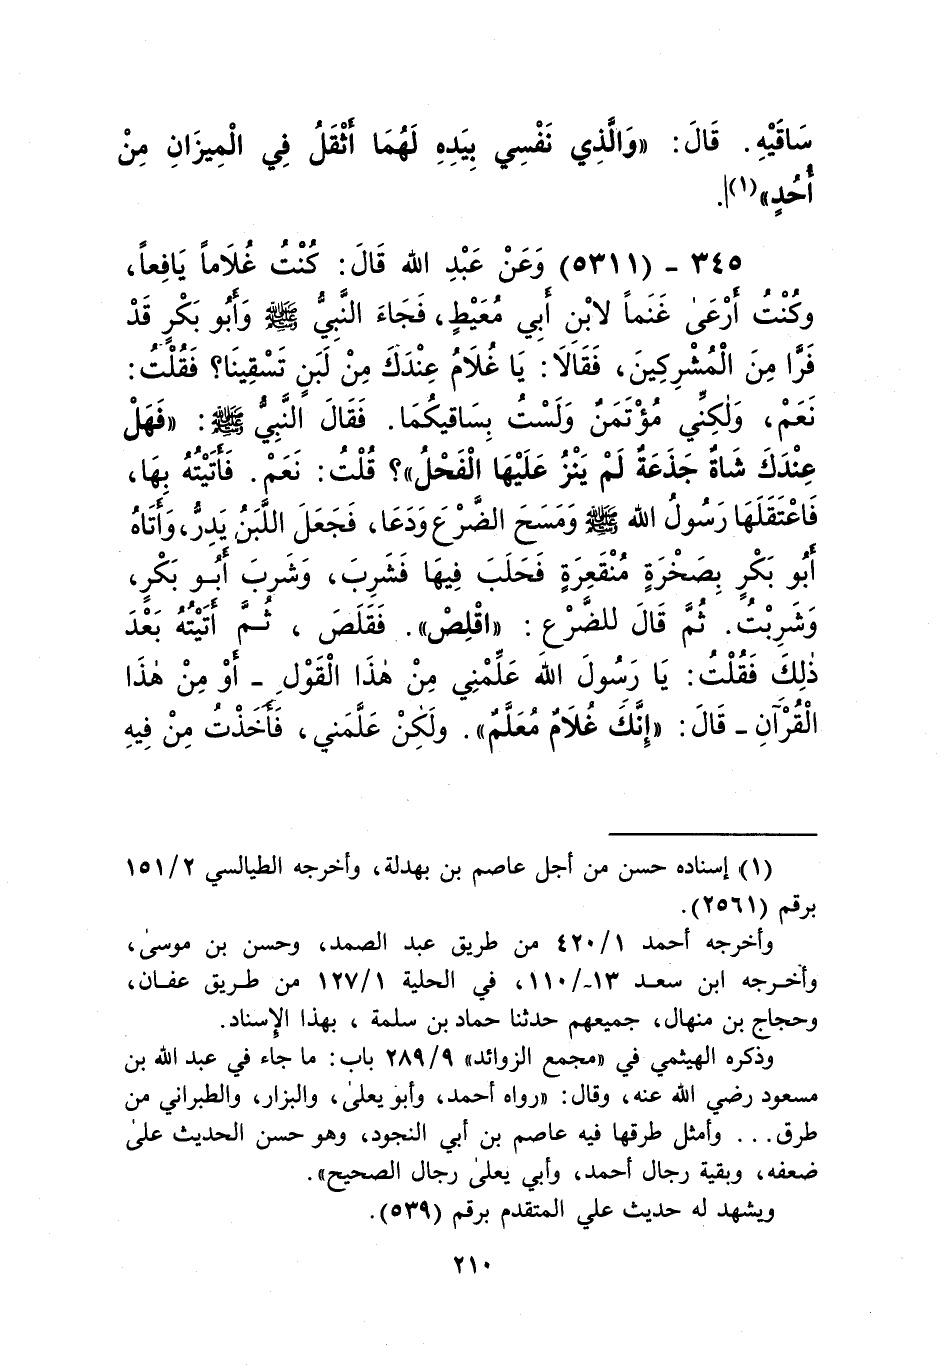 سَاقَيْهِ. قَالَ: «وَالَّذِي نَفْسِي بِيَدِهِ لَهُمَا أَثْقَلُ فِي الْمِيزَانِ مِنْ
أُحُدٍ»(١).
٣٤٥ - (٥٣١١) وَعَنْ عَبْدِ الله قَالَ: كُنْتُ غُلَاماً يَافِعاً،
وكُنْتُ أَرْعَىٰ غَنَماً لابْنِ أَبي مُعَيْطٍ، فَجَاءَ النَّبِيُّ ﷺ وَأَبُو بَكْرٍ قَدْ
فَرَّا مِنَ الْمُشْرِكِينَ، فَقَالَا: يَا غُلَامُ عِنْدَكَ مِنْ لَبَنٍ تَسْقِينَا؟ فَقُلْتُ:
نَعَمْ، وَلٰكِنِّي مُؤْتَمَنٌ وَلَسْتُ بِسَاقيكُمَا. فَقَالَ النَّبِيُّ ﷺ: «فَهَلْ
عِنْدَكَ شَاةٌ جَذَعَةٌ لَمْ يَنْزُ عَلَيْهَا الْفَحْلُ»؟ قُلْتُ: نَعَمْ. فَأَتَيْتُهُ بِهَا،
فَاعْتَقَلَهَا رَسُولُ الله ﷺ وَمَسَحَ الضَّرْعَ وَدَعَا، فَجَعَلَ اللَّبَنُ يَدِرُّ، وَأَتَاهُ
أَبُو بَكْرٍ بِصَخْرَةٍ مُنْقَعِرَةٍ فَحَلَبَ فِيهَا فَشَرِبَ، وَشَرِبَ أَبُو بَكْرٍ،
وَشَرِبْتُ. ثُمَّ قَالَ للضَّرْعِ: «اقْلِصْ». فَقَلَصَ ، ثُمَّ أَتَيْتُهُ بَعْدَ
ذٰلِكَ فَقُلْتُ: يَا رَسُولَ الله عَلِّمْنِي مِنْ هٰذَا الْقَوْلِ - أَوْ مِنْ هٰذَا
الْقُرْآنِ - قَالَ: «إِنَّكَ غُلَامٌ مُعَلَّمٌ». ولَكِنْ عَلَّمَني، فَأَخَذْتُ مِنْ فِيهِ
(١) إسناده حسن من أجل عاصم بن بهدلة، وأخرجه الطيالسي ١٥١/٢
برقم (٢٥٦١).
وأخرجه أحمد ٤٢٠/١ من طريق عبد الصمد، وحسن بن موسىٰ،
وأخرجه ابن سعد ١١٠/-١٣، في الحلية ١٢٧/١ من طريق عفان،
وحجاج بن منهال، جميعهم حدثنا حماد بن سلمة ، بهذا الإسناد.
وذكره الهيثمي في «مجمع الزوائد» ٢٨٩/٩ باب: ما جاء في عبد الله بن
مسعود رضي الله عنه، وقال: «رواه أحمد، وأبو يعلىٰ، والبزار، والطبراني من
طرق... وأمثل طرقها فيه عاصم بن أبي النجود، وهو حسن الحديث علىٰ
ضعفه، وبقية رجال أحمد، وأبي يعلىٰ رجال الصحيح».
ويشهد له حديث علي المتقدم برقم (٥٣٩).
٢١٠